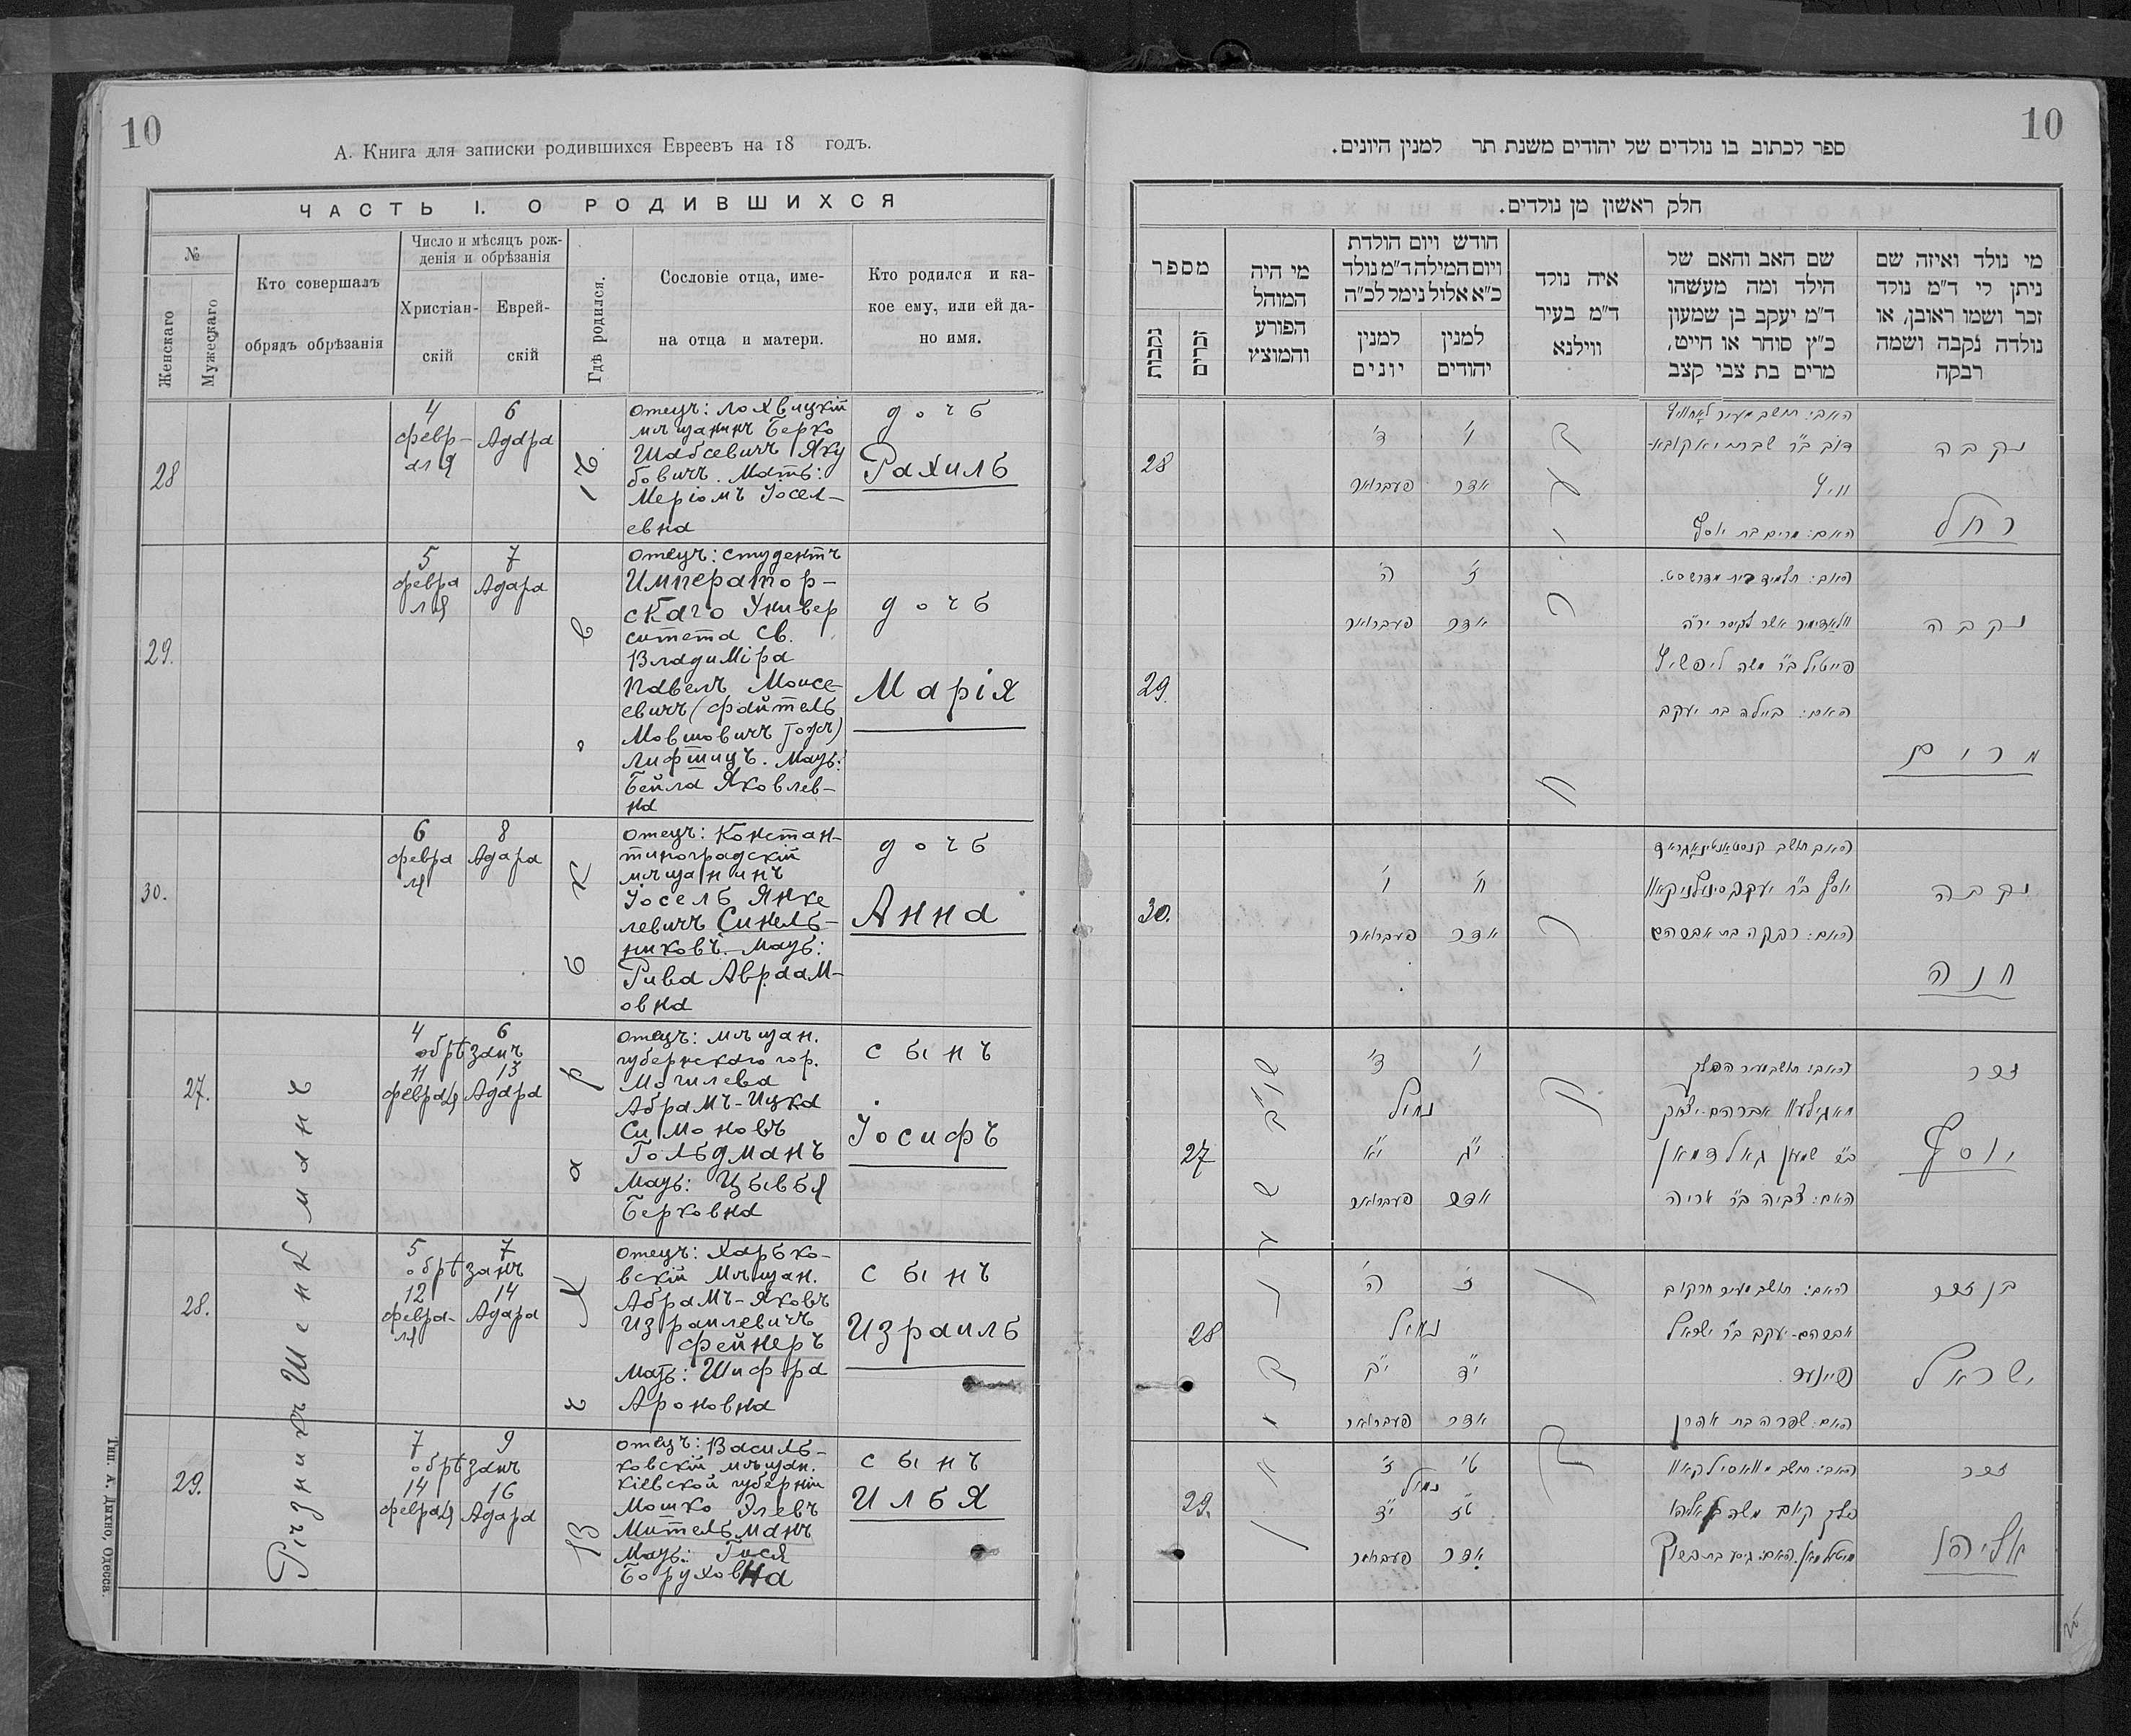 10
А. Книга для записки родившихся Евреевъ на 18 годъ.
ЧАСТЬ I. О РОДИВШИХСЯ
№
Женскаго
Мужескаго
Кто совершалъ
обрядъ обрѣзанія
Число и мѣсяцъ рож-
денія и обрѣзанія
Христіан-
скій
Еврей-
скій
Гдѣ родился.
Сословіе отца, име-
на отца и матери.
Кто родился и ка-
кое ему, или ей да-
но имя.
28
4
февр-
аля
6
Адара
отецъ: Лохвицкій
мѣщанинъ Берко
Шабсевичъ Яку
бовичъ. Мать:
Меріомъ Іосел-
евна
дочь
Рахиль
29.
5
февра
ля
7
Адара
отецъ: студентъ
Император-
скаго Универ
ситета Св.
Владиміра
Павелъ Моисе-
евичъ (Файтель
Мовшовичъ тожъ)
Лифшицъ. Мать:
Бейла Яковлев-
на
дочь
Марія
30.
6
февра
ля
8
Адара
отецъ: Констан-
тиноградскій
мѣщанинъ
Іосель Янке
левичъ Синель-
никовъ. Мать:
Рива Авраам-
овна
дочь
Анна
27.
4 6
обрѣзанъ
11 13
февраля Адара
отецъ: мѣщан.
губернскаго гор.
Могилева
Абрамъ-Ицка
Симоновъ
Гольдманъ
Мать: Цывья
Берковна
сынъ
Іосифъ
28.
5 7
обрѣзанъ
12 14
февра-
ля
Адара
отецъ: Харько-
вскій мѣщан.
Абрамъ-Яковъ
Израилевичъ
Фейнеръ
Мать: Шифра
Ароновна
сынъ
Израиль
29.
7 9
обрѣзанъ
14 16
февраля Адара
отецъ: Василь-
ковскій мѣщан.
Кіевской губерніи
Мошко Элевъ
Мительманъ
Мать: Гися
Боруховна
сынъ
Илья
Рѣзникъ Шенкманъ
въ г. Харьковѣ
Тип. А. Дыхно, Одесса.
10
ספר לכתוב בו נולדים של יהודים משנת תר למנין היונים.
חלק ראשון מן נולדים.
מספר
נקבות
זכרים
מי היה
המוהל
הפורע
והמוצץ
חודש ויום הולדת
ויום המילה ד"מ נולד
כ"א אלול נימל לכ"ה
למנין
יונים
למנין
יהודים
איה נולד
ד"מ בעיר
ווילנא
שם האב והאם של
הילד ומה מעשהו
ד"מ יעקב בן שמעון
כ"ץ סוחר או חייט,
מרים בת צבי קצב
מי נולד ואיזה שם
ניתן לי ד"מ נולד
זכר ושמו ראובן, או
נולדה נקבה ושמה
רבקה
28
ד' ו'
פעברואר אדר
האם: מרים בת יוסף
נקבה
רחל
29.
ה' ז'
פעברואר אדר
פייטיל ב"ר משה ליפשיץ
האם: ביילה בת יעקב
נקבה
מרים
30.
ו' ח'
פעברואר אדר
האם: רבקה בת אברהם
נקבה
חנה
27
ד' ו'
נמול
י"א י"ג
פעברואר אדר
ב"ר שמעון גאלדמאן
זכר
יוסף
28
ה' ז'
נמול
י"ב י"ד
פעברואר אדר
אברהם-יעקב ב"ר ישראל
פיינער
האם: שפרה בת אהרן
בן זכר
ישראל
29.
ז' ט'
נמול
י"ד ט"ז
פעברואר אדר
זכר
אליהו